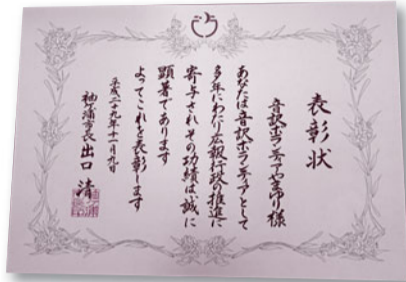 表彰状
音訳ボランティアやまゆり様
あなたは音訳ボランティアとして
多年にわたり広報行政の推進に
寄与されその功績は誠に
顕著であります
よってこれを表彰します
平成二十九年十一月九日
袖ケ浦市長 出口 清